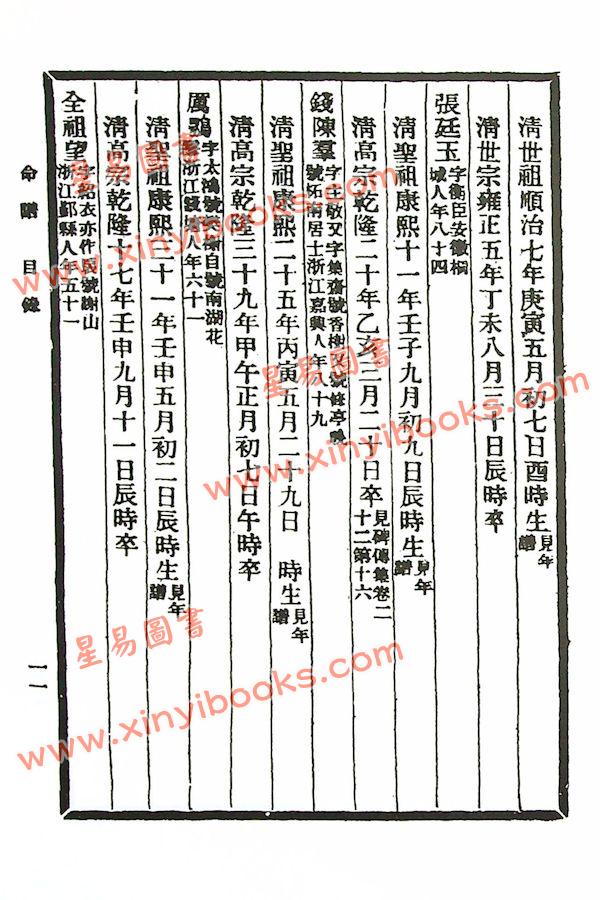 清世祖順治七年庚寅五月初七日酉時生見年譜
清世宗雍正五年丁未八月三十日辰時卒
張廷玉字衡臣安徽桐城人年八十四
清聖祖康熙十一年壬子九月初九日辰時生見年譜
清高宗乾隆二十年乙亥三月二十日卒見碑傳集卷二十二第十六
錢陳羣字主敬又字集齋號香樹又號修亭晚號柘南居士浙江嘉興人年八十九
清聖祖康熙二十五年丙寅五月二十九日 時生見年譜
清高宗乾隆三十九年甲午正月初七日午時卒
厲鶚字太鴻號樊榭自號南湖花隱浙江錢塘人年六十一
清聖祖康熙三十一年壬申五月初二日辰時生見年譜
清高宗乾隆十七年壬申九月十一日辰時卒
全祖望字紹衣亦作 號謝山浙江鄞縣人年五十一
命譜 目錄
一一
星易圖書
www.xinyibooks.com
星易圖書
www.xinyibooks.com
星易圖書
www.xinyibooks.com